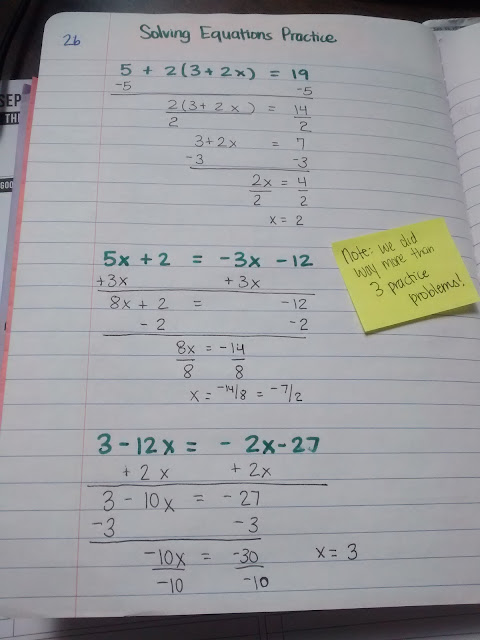 26
Solving Equations Practice
5 + 2(3 + 2x) = 19
-5 -5
2(3 + 2x) = 14
2 2
3 + 2x = 7
-3 -3
2x = 4
2 2
x = 2
5x + 2 = -3x - 12
+3x +3x
8x + 2 = -12
-2 -2
8x = -14
8 8
x = -14/8 = -7/2
Note: we did
way more than
3 practice
problems!
3 - 12x = - 2x - 27
+ 2x + 2x
3 - 10x = - 27
-3 -3
-10x = -30
-10 -10
x = 3
SEP
TH
GOO